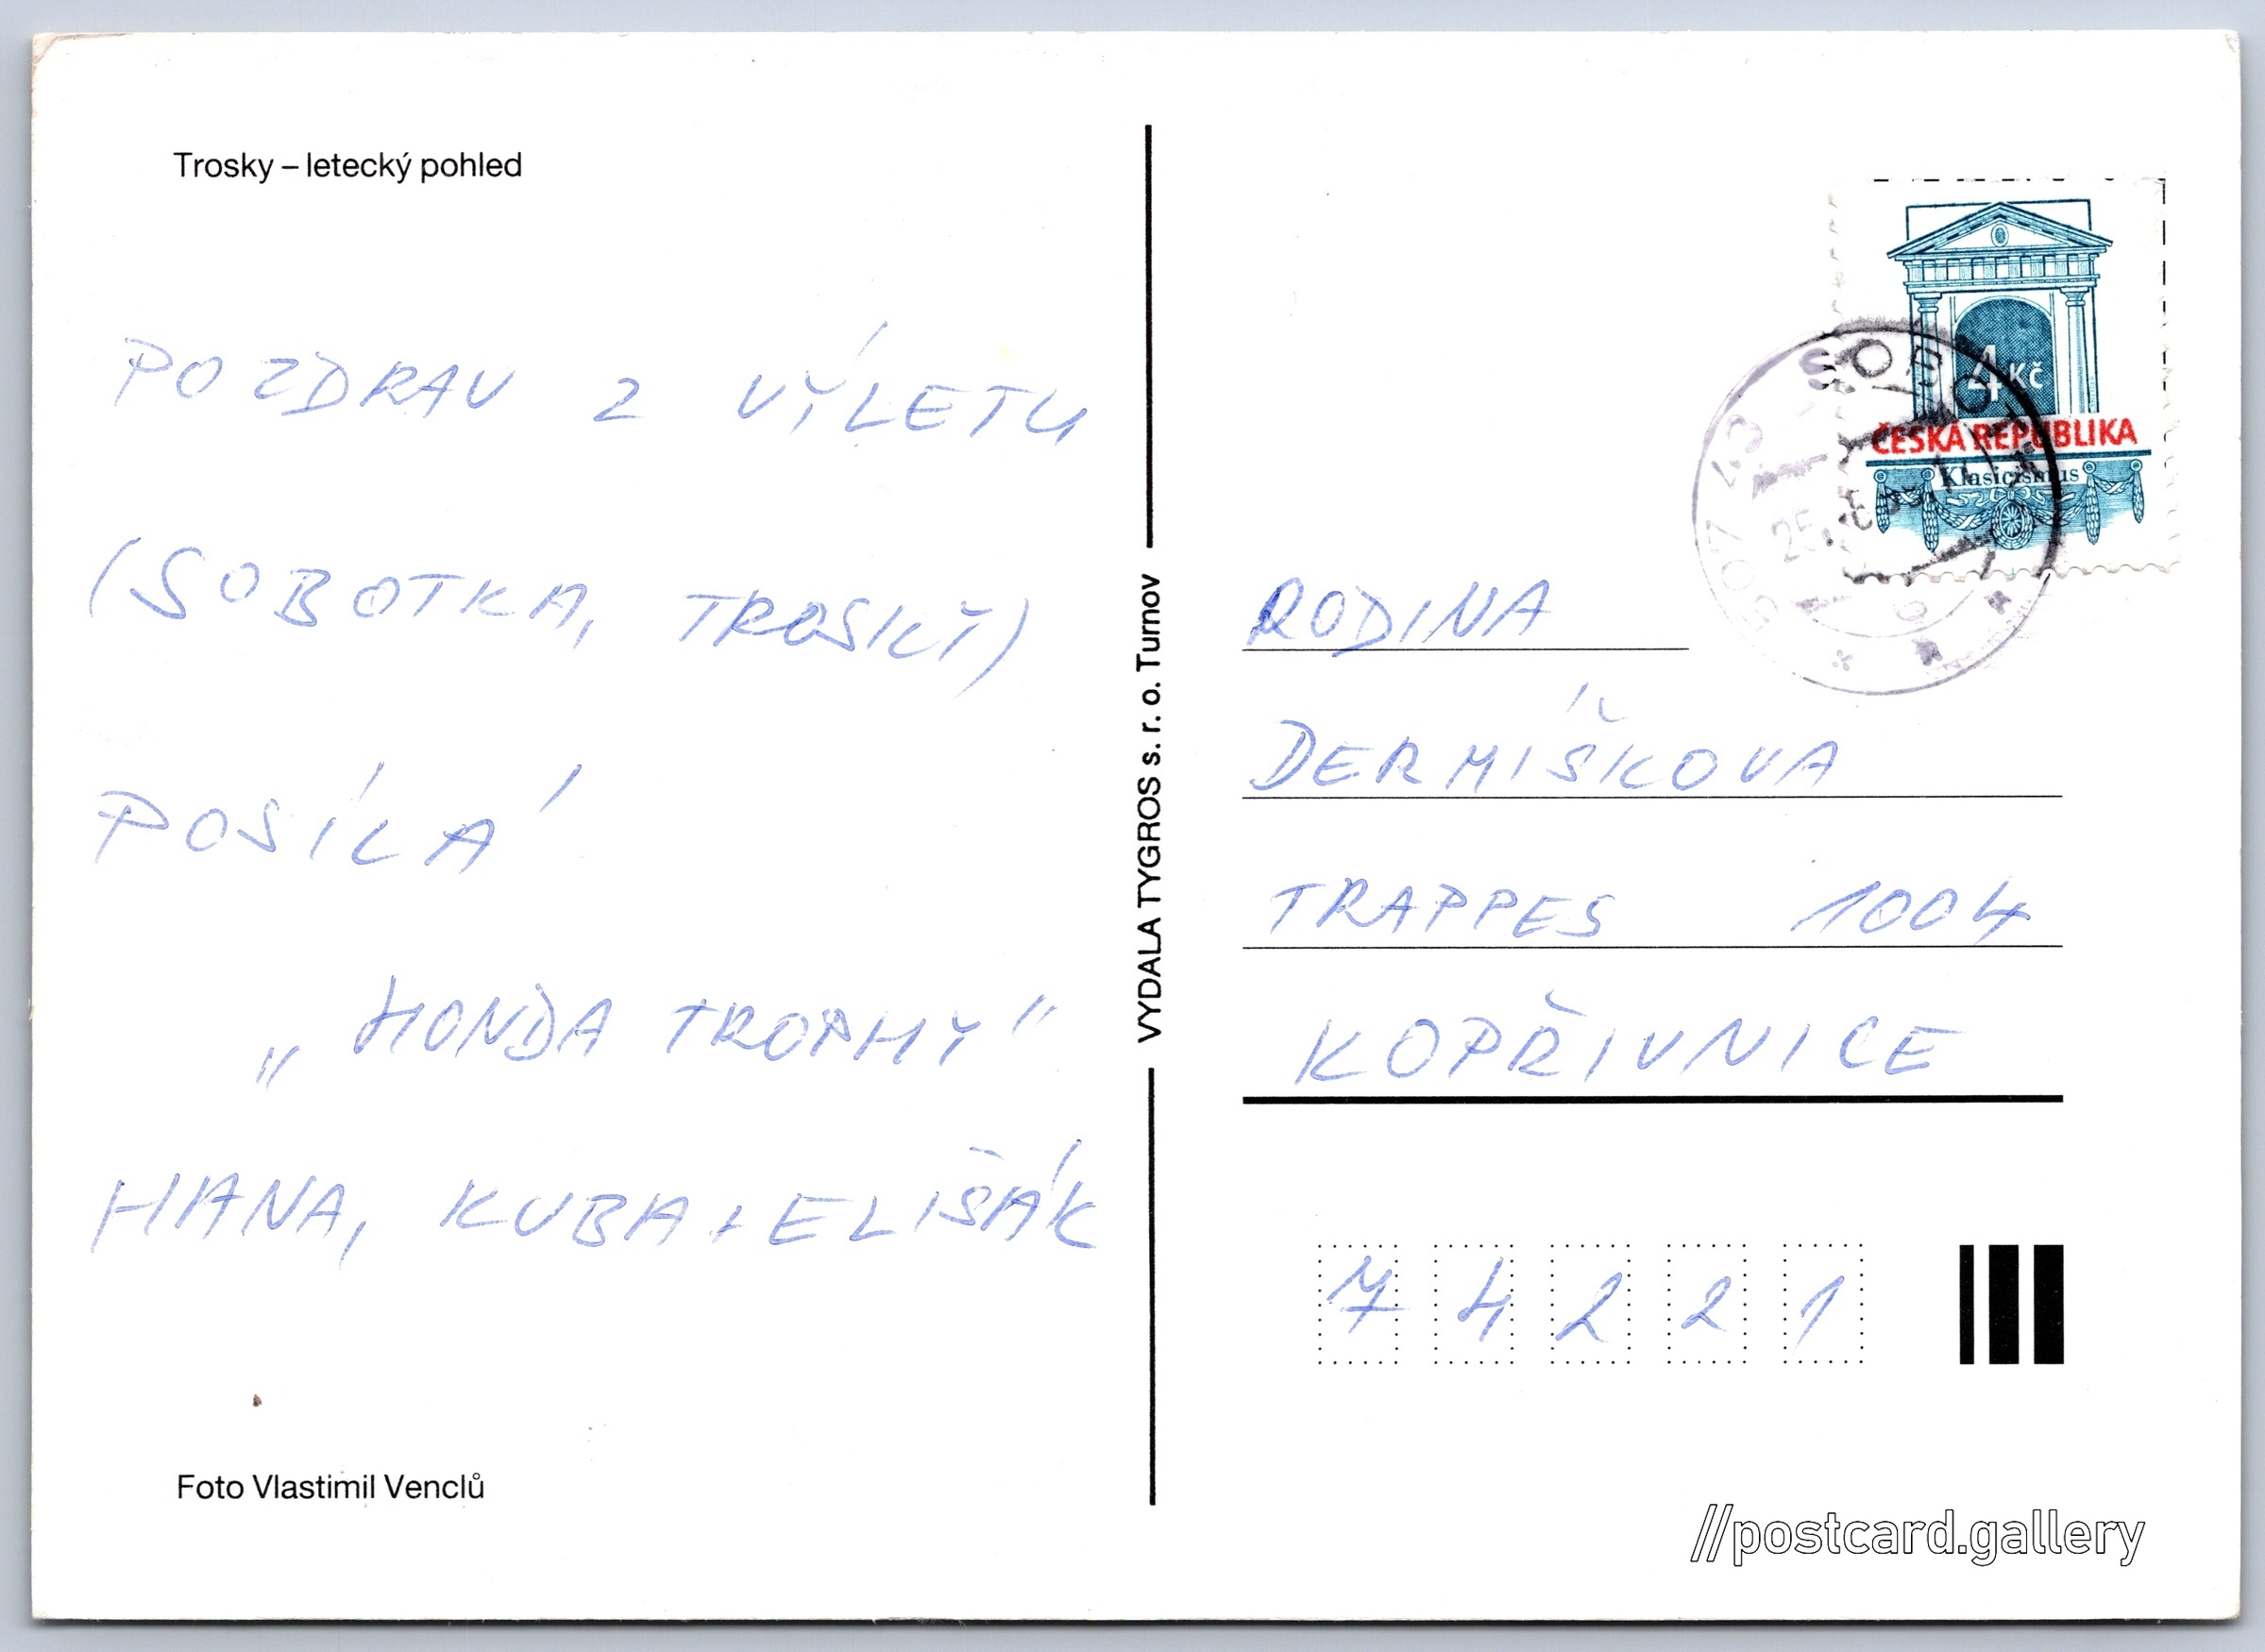 Trosky – letecký pohled
POZDRAV Z VÝLETU
(SOBOTKA, TROSKY)
POSÍLÁ
„HONDA TROPHY“
HANA, KUBA + ELIŠÁK
Foto Vlastimil Venclů
VYDALA TYGROS s. r. o. Turnov
4 Kč
ČESKÁ REPUBLIKA
Klasicismus
507 43 SOBOTKA
RODINA
DERMÍŠKOVA
TRAPPES 1004
KOPŘIVNICE
74221
//postcard.gallery